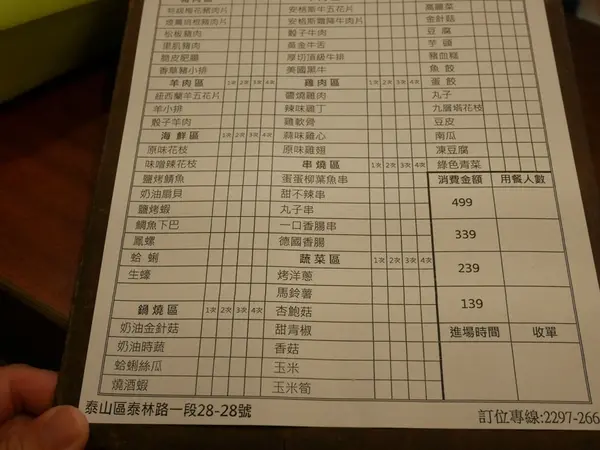 特級梅花豬肉片
松板豬肉
里肌豬肉
脆皮肥腸
香草豬小排
羊肉區 1次 2次 3次 4次
紐西蘭羊五花片
羊小排
骰子羊肉
海鮮區 1次 2次 3次 4次
原味花枝
味噌辣花枝
鹽烤鯖魚
奶油扇貝
鹽烤蝦
鯛魚下巴
鳳螺
蛤蜊
生蠔
鍋燒區 1次 2次 3次 4次
奶油金針菇
奶油時蔬
蛤蜊絲瓜
燒酒蝦
安格斯牛五花片
骰子牛肉
黃金牛舌
厚切頂級牛排
美國黑牛
雞肉區 1次 2次 3次 4次
鹽燒雞肉
辣味雞丁
雞軟骨
蒜味雞心
原味雞翅
串燒區 1次 2次 3次 4次
蛋蛋柳葉魚串
甜不辣串
丸子串
一口香腸串
德國香腸
蔬菜區 1次 2次 3次 4次
烤洋蔥
馬鈴薯
杏鮑菇
甜青椒
香菇
玉米
玉米筍
高麗菜
金針菇
豆腐
芋頭
豬血糕
魚餃
蛋餃
丸子
九層塔花枝
豆皮
南瓜
凍豆腐
綠色青菜
消費金額 用餐人數
499
339
239
139
進場時間 收單
泰山區泰林路一段28-28號
訂位專線:2297-266